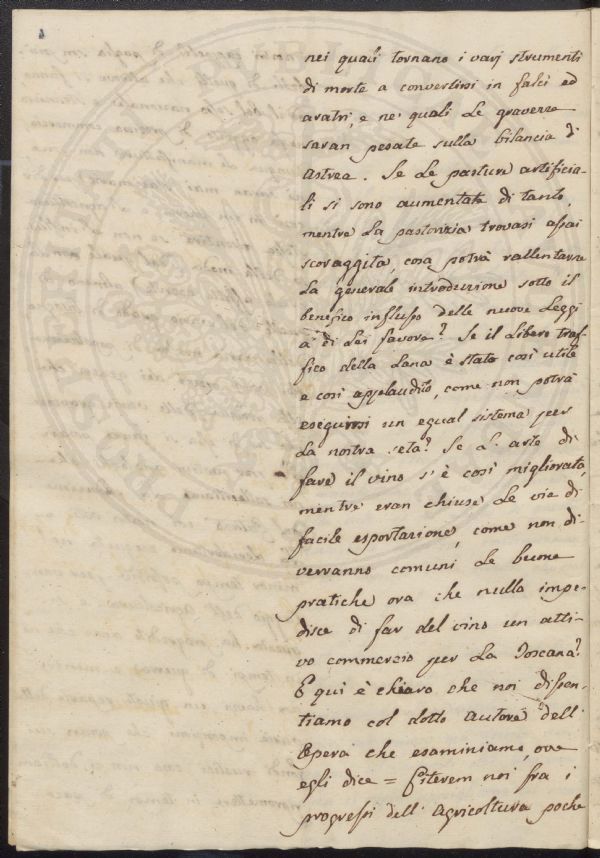 nei quali tornano i varj strumenti
di morte a convertirsi in falci ed
aratri, e ne' quali le gravezze
saran pesate sulla bilancia d'
Astrea. Se le pasture artificia-
li si sono aumentate di tanto,
mentre la pastorizia trovasi assai
scoraggita, cosa potrà rallentarne
la generale introduzione sotto il
benefico influsso delle nuove Leggi
a di lei favore? Se il libero traf-
fico della Lana è stato così utile
e così applaudito, come non potrà
eseguirsi un egual sistema per
la nostra seta? Se l'arte di
fare il vino s'è così migliorata,
mentre eran chiuse le vie di
facile esportazione, come non di-
verranno comuni le buone
pratiche ora che nulla impe-
disce di far del vino un atti-
vo commercio per la Toscana?
E quì è chiaro che noi dissen-
tiamo col dotto autore dell'
Opera che esaminiamo, ove
egli dice = Citerem noi fra i
progressi dell'Agricoltura poche